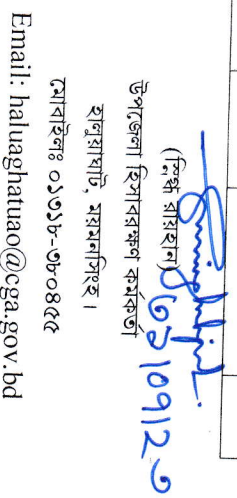 (স্নিগ্ধ রায়হান)
উপজেলা হিসাবরক্ষণ কর্মকর্তা
হালুয়াঘাট, ময়মনসিংহ।
মোবাইলঃ ০১৩১৮-৩৮০৪৫৫
Email: haluaghatuao@cga.gov.bd